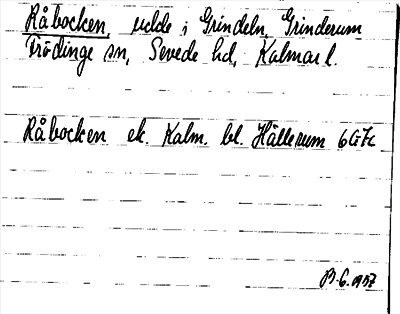 Råbocken, udde i Grindeln, Grinderum
Frödinge sn, Sevede hd, Kalmar l.
Råbocken ek. Kalm. bl. Hällerum
B.G. 1957